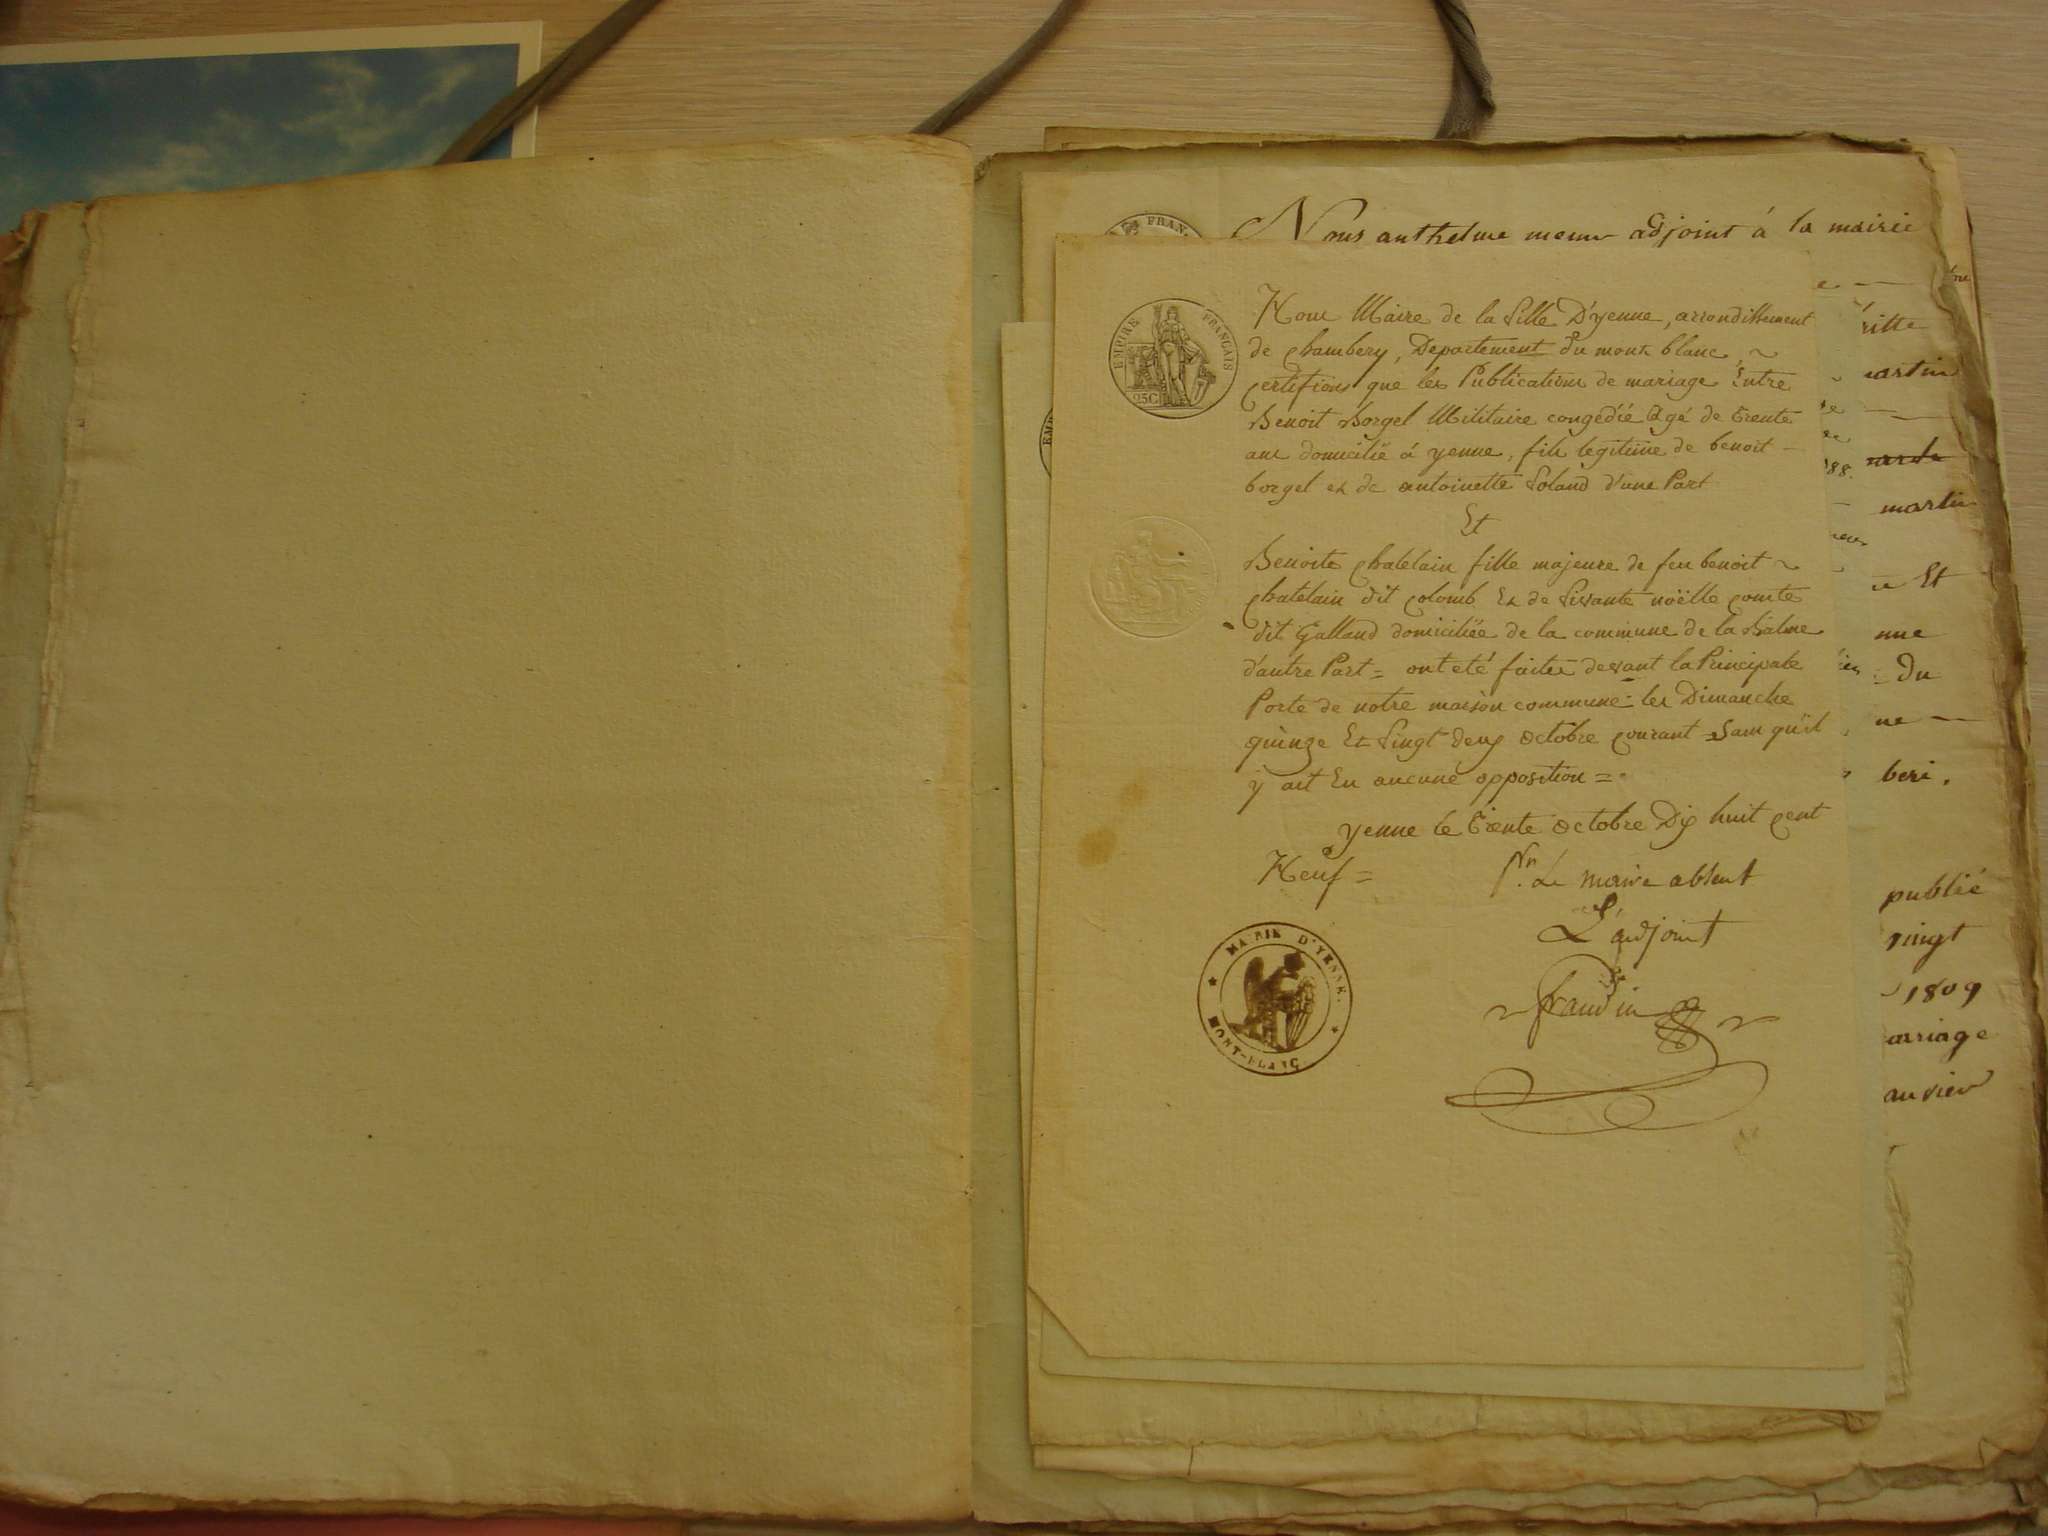 Nous anthelme adjoint à la mairie
FRAN
EMPIRE FRANÇAIS
25C
Nous Maire de la Ville D'yenne, arrondissement
de chambery, Departement du mont blanc, ~
certifions que les Publications de mariage Entre
Benoit Borgel Militaire congédié Agé de trente
ans domicilié à yenne, fils legitime de benoit -
borgel et de antoinette Voland d'une Part
Et
Benoite chatelain fille majeure de feu benoit ~
chatelain dit colomb Et de Vivante noëlle comte
dit Galland domiciliée de la commune de la Balme
d'autre Part = ont été faites devant la Principale
Porte de notre maison commune les Dimanche
quinze Et Vingt deux octobre courant sans qu'il
y ait Eu aucune opposition =
yenne le trente octobre Dix huit cent
Neuf =
Pr. Le maire absent
L'adjoint
frandin
MAIRIE D'YENNE.
MONT-BLANC
EMP
88.
martin
Et
du
beri.
publié
vingt
1809